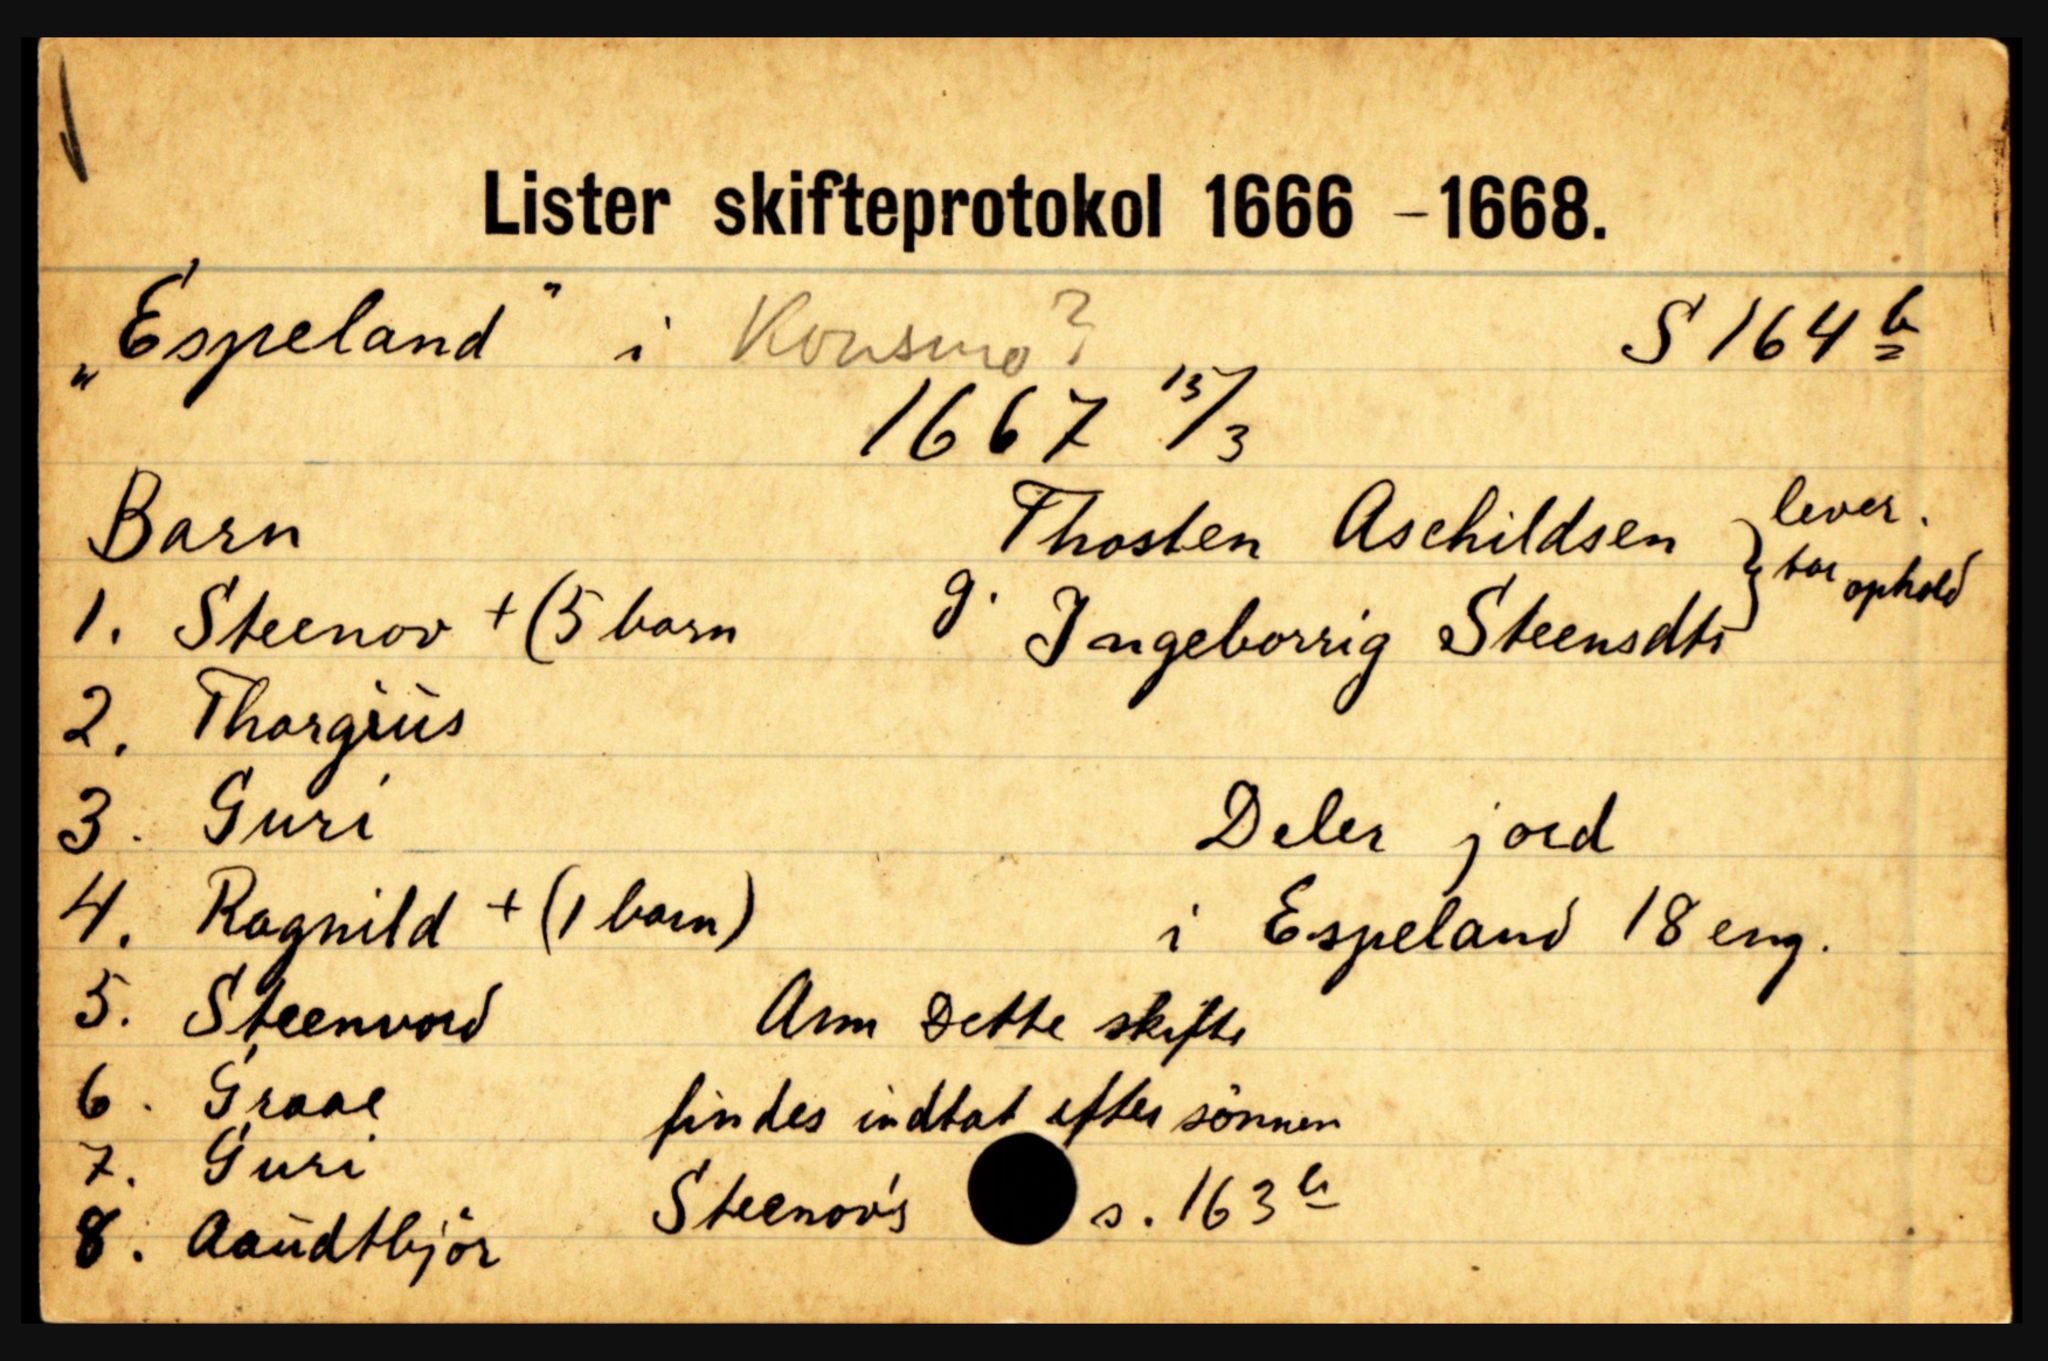 Lister skifteprotokol 1666 - 1668.
„Espeland" i Konsmo? S 164 b
1667 15/3
Barn Thosten Aschildsen } lever.
tar ophold
1. Steenov + (5 barn g. Ingeborrig Steensdtr
2. Thorgiüs
3. Guri Deler jord
4. Ragnild + (1 barn) i Espeland 18 eng.
5. Steenvord Anm Dette skifte
6. Graae findes indtat efter sönnen
7. Guri Steenov's s. 163 b
8. Aaüdtbjör